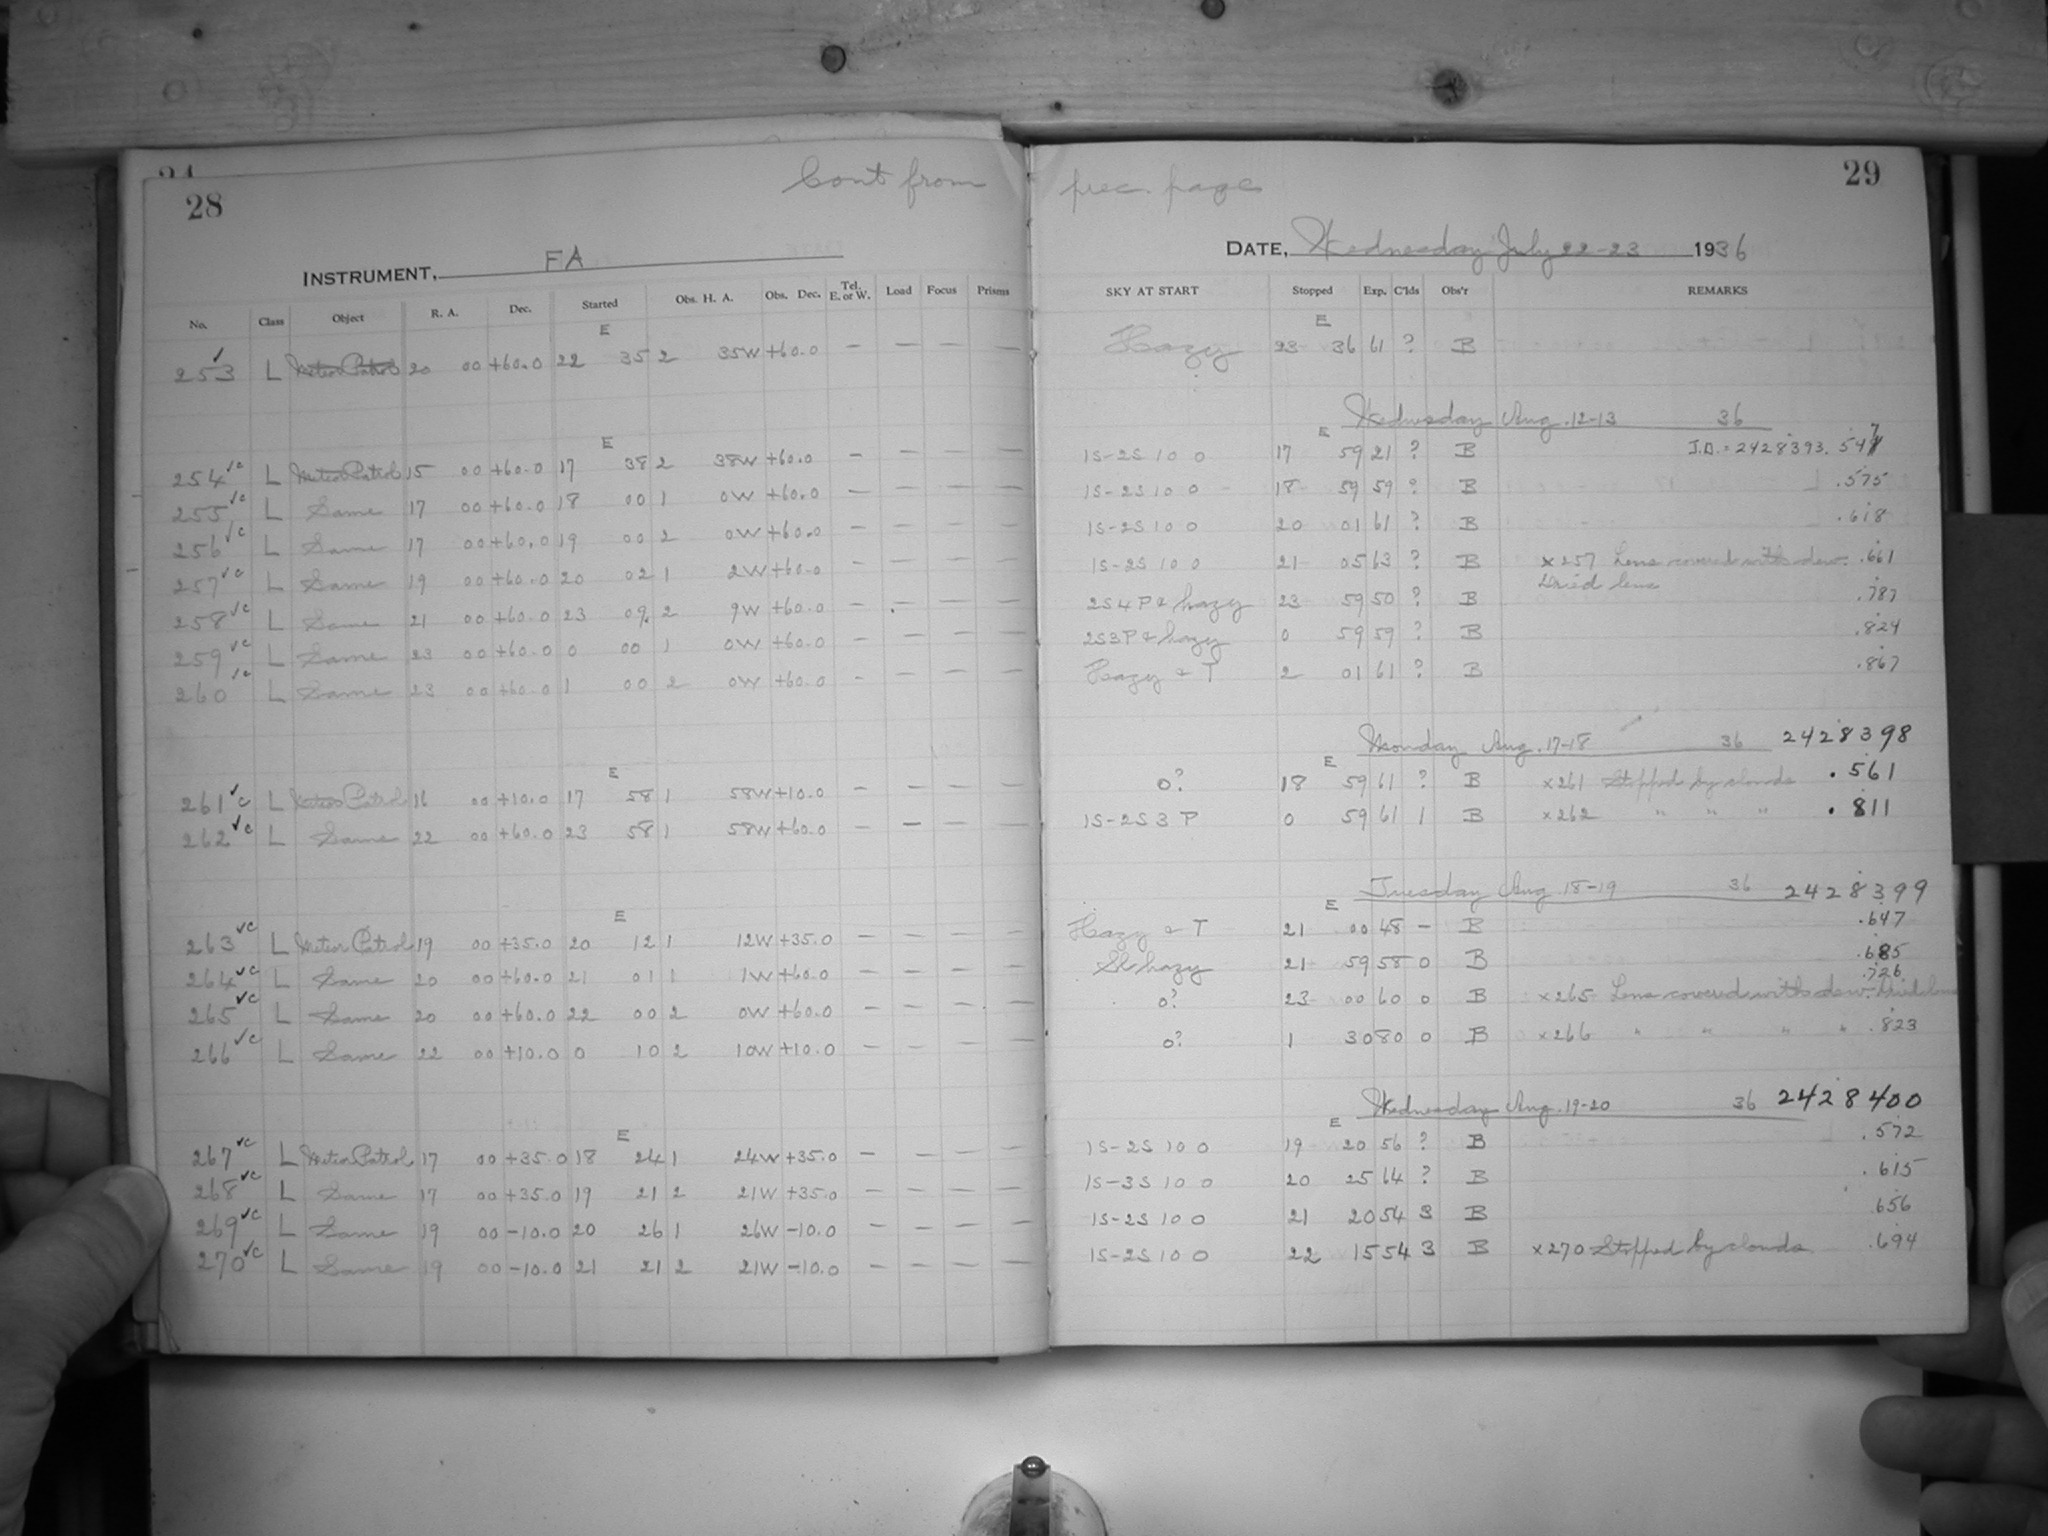 28
Cont from prec. page
29
INSTRUMENT, FA
DATE, Wednesday July 22-23 1936
No. Class Object R. A. Dec. Started Obs. H. A. Obs. Dec. Tel. E. or W. Load Focus Prisms SKY AT START Stopped Exp. C'lds Obs'r REMARKS
E E
253 ✓ L Meteor Patrol 20 00 +60.0 22 35 2 35W +60.0 — — — — Hazy 23 36 61 ? B
Wednesday Aug. 12-13 36
E E
254 ✓c L Meteor Patrol 15 00 +60.0 17 38 2 38W +60.0 — — — — 1S-2S 10 0 17 59 21 ? B J.D. = 2428393.547
255 ✓c L Same 17 00 +60.0 18 00 1 0W +60.0 — — — — 1S-2S 10 0 18 59 59 ? B .575
256 ✓c L Same 17 00 +60.0 19 00 2 0W +60.0 — — — — 1S-2S 10 0 20 01 61 ? B .618
257 ✓c L Same 19 00 +60.0 20 02 1 2W +60.0 — — — — 1S-2S 10 0 21 05 63 ? B x257 Lens covered with dew. .661
Dried lens
258 ✓c L Same 21 00 +60.0 23 09 2 9W +60.0 — — — — 2S4P & hazy 23 59 50 ? B .787
259 ✓c L Same 23 00 +60.0 0 00 1 0W +60.0 — — — — 2S3P & hazy 0 59 59 ? B .824
260 ✓c L Same 23 00 +60.0 1 00 2 0W +60.0 — — — — Hazy & T 2 01 61 ? B .867
Monday Aug. 17-18 36 2428398
E E
261 ✓c L Meteor Patrol 16 00 +10.0 17 58 1 58W +10.0 — — — — 0? 18 59 61 ? B x261 Stopped by clouds .561
262 ✓c L Same 22 00 +60.0 23 58 1 58W +60.0 — — — — 1S-2S 3 P 0 59 61 1 B x262 " " " .811
Tuesday Aug. 18-19 36 2428399
E E
263 ✓c L Meteor Patrol 19 00 +35.0 20 12 1 12W +35.0 — — — — Hazy & T 21 00 48 — B .647
264 ✓c L Same 20 00 +60.0 21 01 1 1W +60.0 — — — — Sl hazy 21 59 58 0 B .685
265 ✓c L Same 20 00 +60.0 22 00 2 0W +60.0 — — — — 0? 23 00 60 0 B x265 Lens covered with dew. Dried lens .726
266 ✓c L Same 22 00 +10.0 0 10 2 10W +10.0 — — — — 0? 1 30 80 0 B x266 " " " " .823
Wednesday Aug. 19-20 36 2428400
E E
267 ✓c L Meteor Patrol 17 00 +35.0 18 24 1 24W +35.0 — — — — 1S-2S 10 0 19 20 56 ? B .572
268 ✓c L Same 17 00 +35.0 19 21 2 21W +35.0 — — — — 1S-3S 10 0 20 25 64 ? B .615
269 ✓c L Same 19 00 -10.0 20 26 1 26W -10.0 — — — — 1S-2S 10 0 21 20 54 3 B 656
270 ✓c L Same 19 00 -10.0 21 21 2 21W -10.0 — — — — 1S-2S 10 0 22 15 54 3 B x270 Stopped by clouds .694